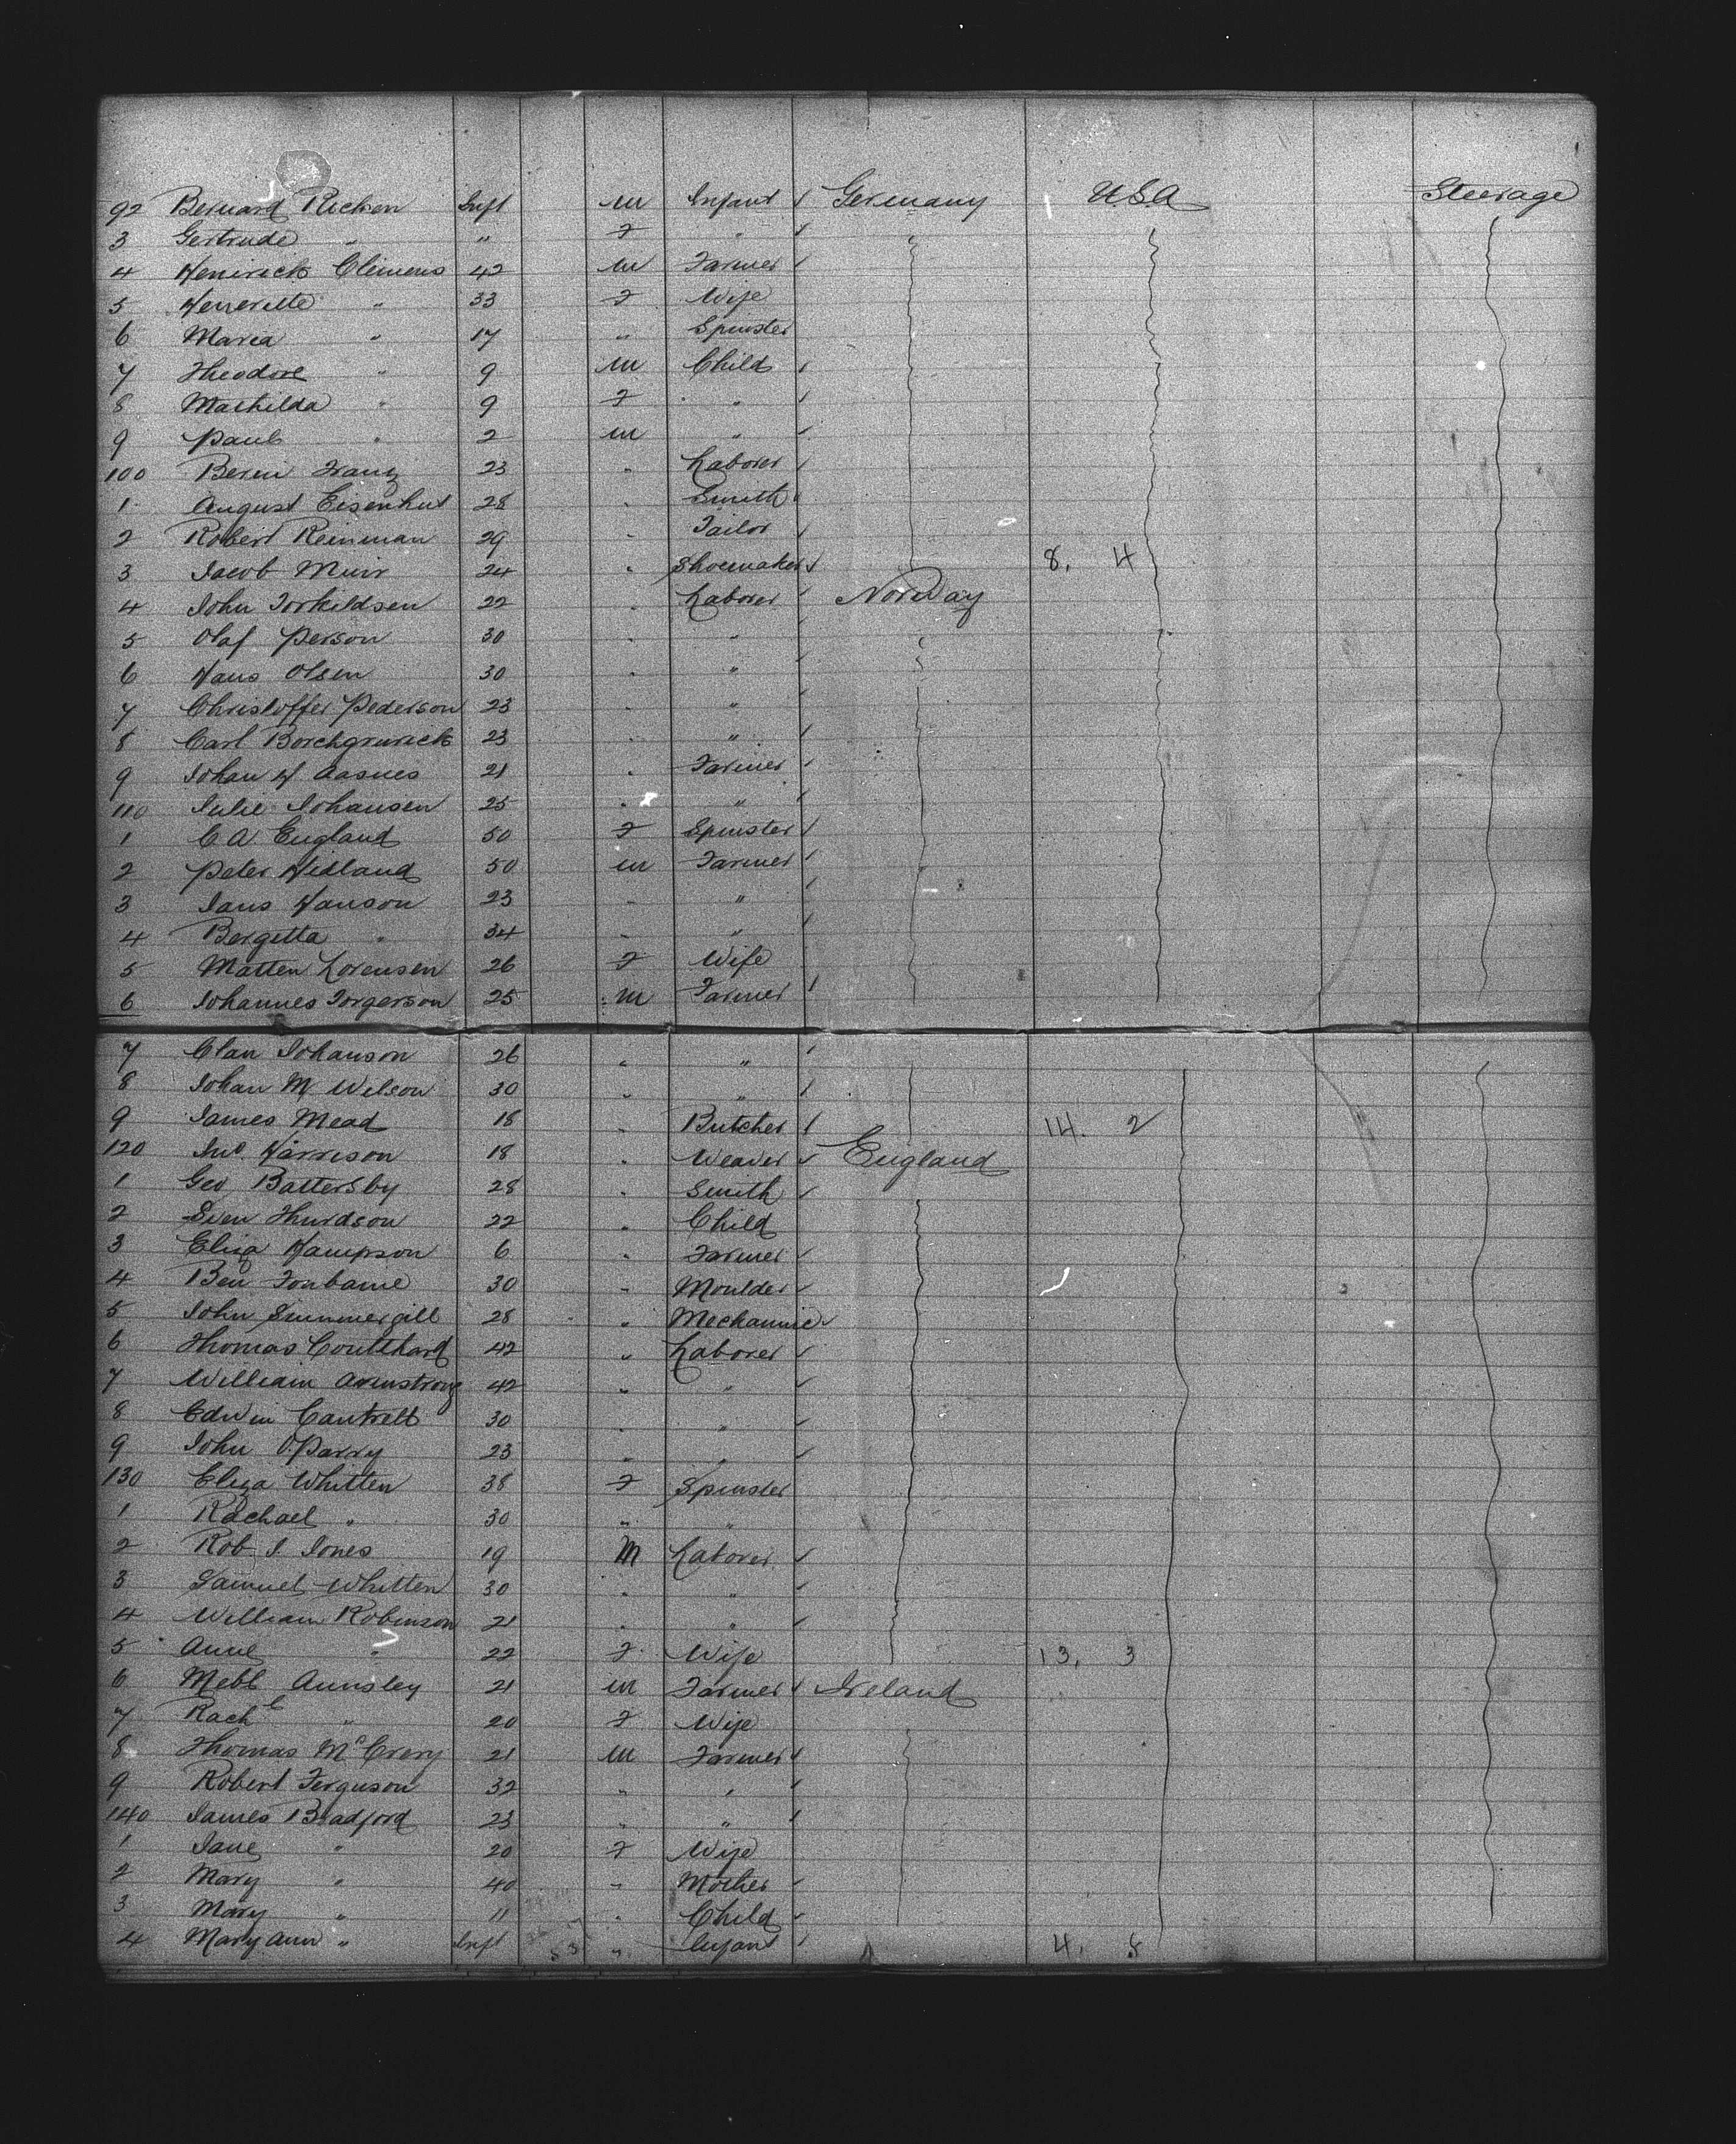 92 Bernard Ricken Inft M Infant Germany USA Steerage
3 Gertrude " " F "
4 Heinrich Clemens 42 M Farmer
5 Henriette " 33 F Wife
6 Maria " 17 " Spinster
7 Theodore " 9 M Child
8 Mathilda " 9 F "
9 Paul " 2 M "
100 Franz 23 " Laborer
1 August Eisenhut 28 " Smith
2 Robert Reinman 29 " Tailor
3 Jacob Muir 24 " Shoemaker 8. 4
4 John Torkildsen 22 " Laborer Norway
5 Olaf Person 30 " "
6 Hans Olsen 30 " "
7 Christoffer Pederson 23 " "
8 Carl Borchgrevick 23 " "
9 Johan H Aasnes 21 " Farmer
110 Julie Johansen 25 " "
1 C A England 50 F Spinster
2 Peter Hidland 50 M Farmer
3 Jans Hanson 23 " "
4 Bergetta " 34 " "
5 Matten Lorensen 26 F Wife
6 Johannes Torgerson 25 M Farmer
7 Clan Johanson 26 " "
8 Johan M Wilson 30 " "
9 James Mead 18 " Butcher 14. 2
120 Jno. Harrison 18 " Weaver England
1 Geo Battersby 28 " Smith
2 Sven 22 " Child
3 Eliza Hampson 6 " Farmer
4 Ben 30 " Moulder
5 John Summergill 28 " Mechannic
6 Thomas Coultthard 42 " Laborer
7 William Armstrong 42 " "
8 Edwin Cantrell 30 " "
9 John O.Parry 23 " "
130 Eliza Whitten 38 F Spinster
1 Rachael " 30 " "
2 Rob. J. Jones 19 M Laborer
3 Samuel Whitten 30 " "
4 William Robinson 21 " "
5 Anne " 22 F Wife 13. 3
6 Mebl Aunsley 21 M Farmer Ireland
7 Rachl " 20 F Wife
8 Thomas McCrery 21 M Farmer
9 Robert Ferguson 32 " "
140 James Bradford 23 " "
1 Jane " 20 F Wife
2 Mary " 40 " Mother
3 Mary " 11 " Child
4 Mary Ann " Inft " Infant 4. 8